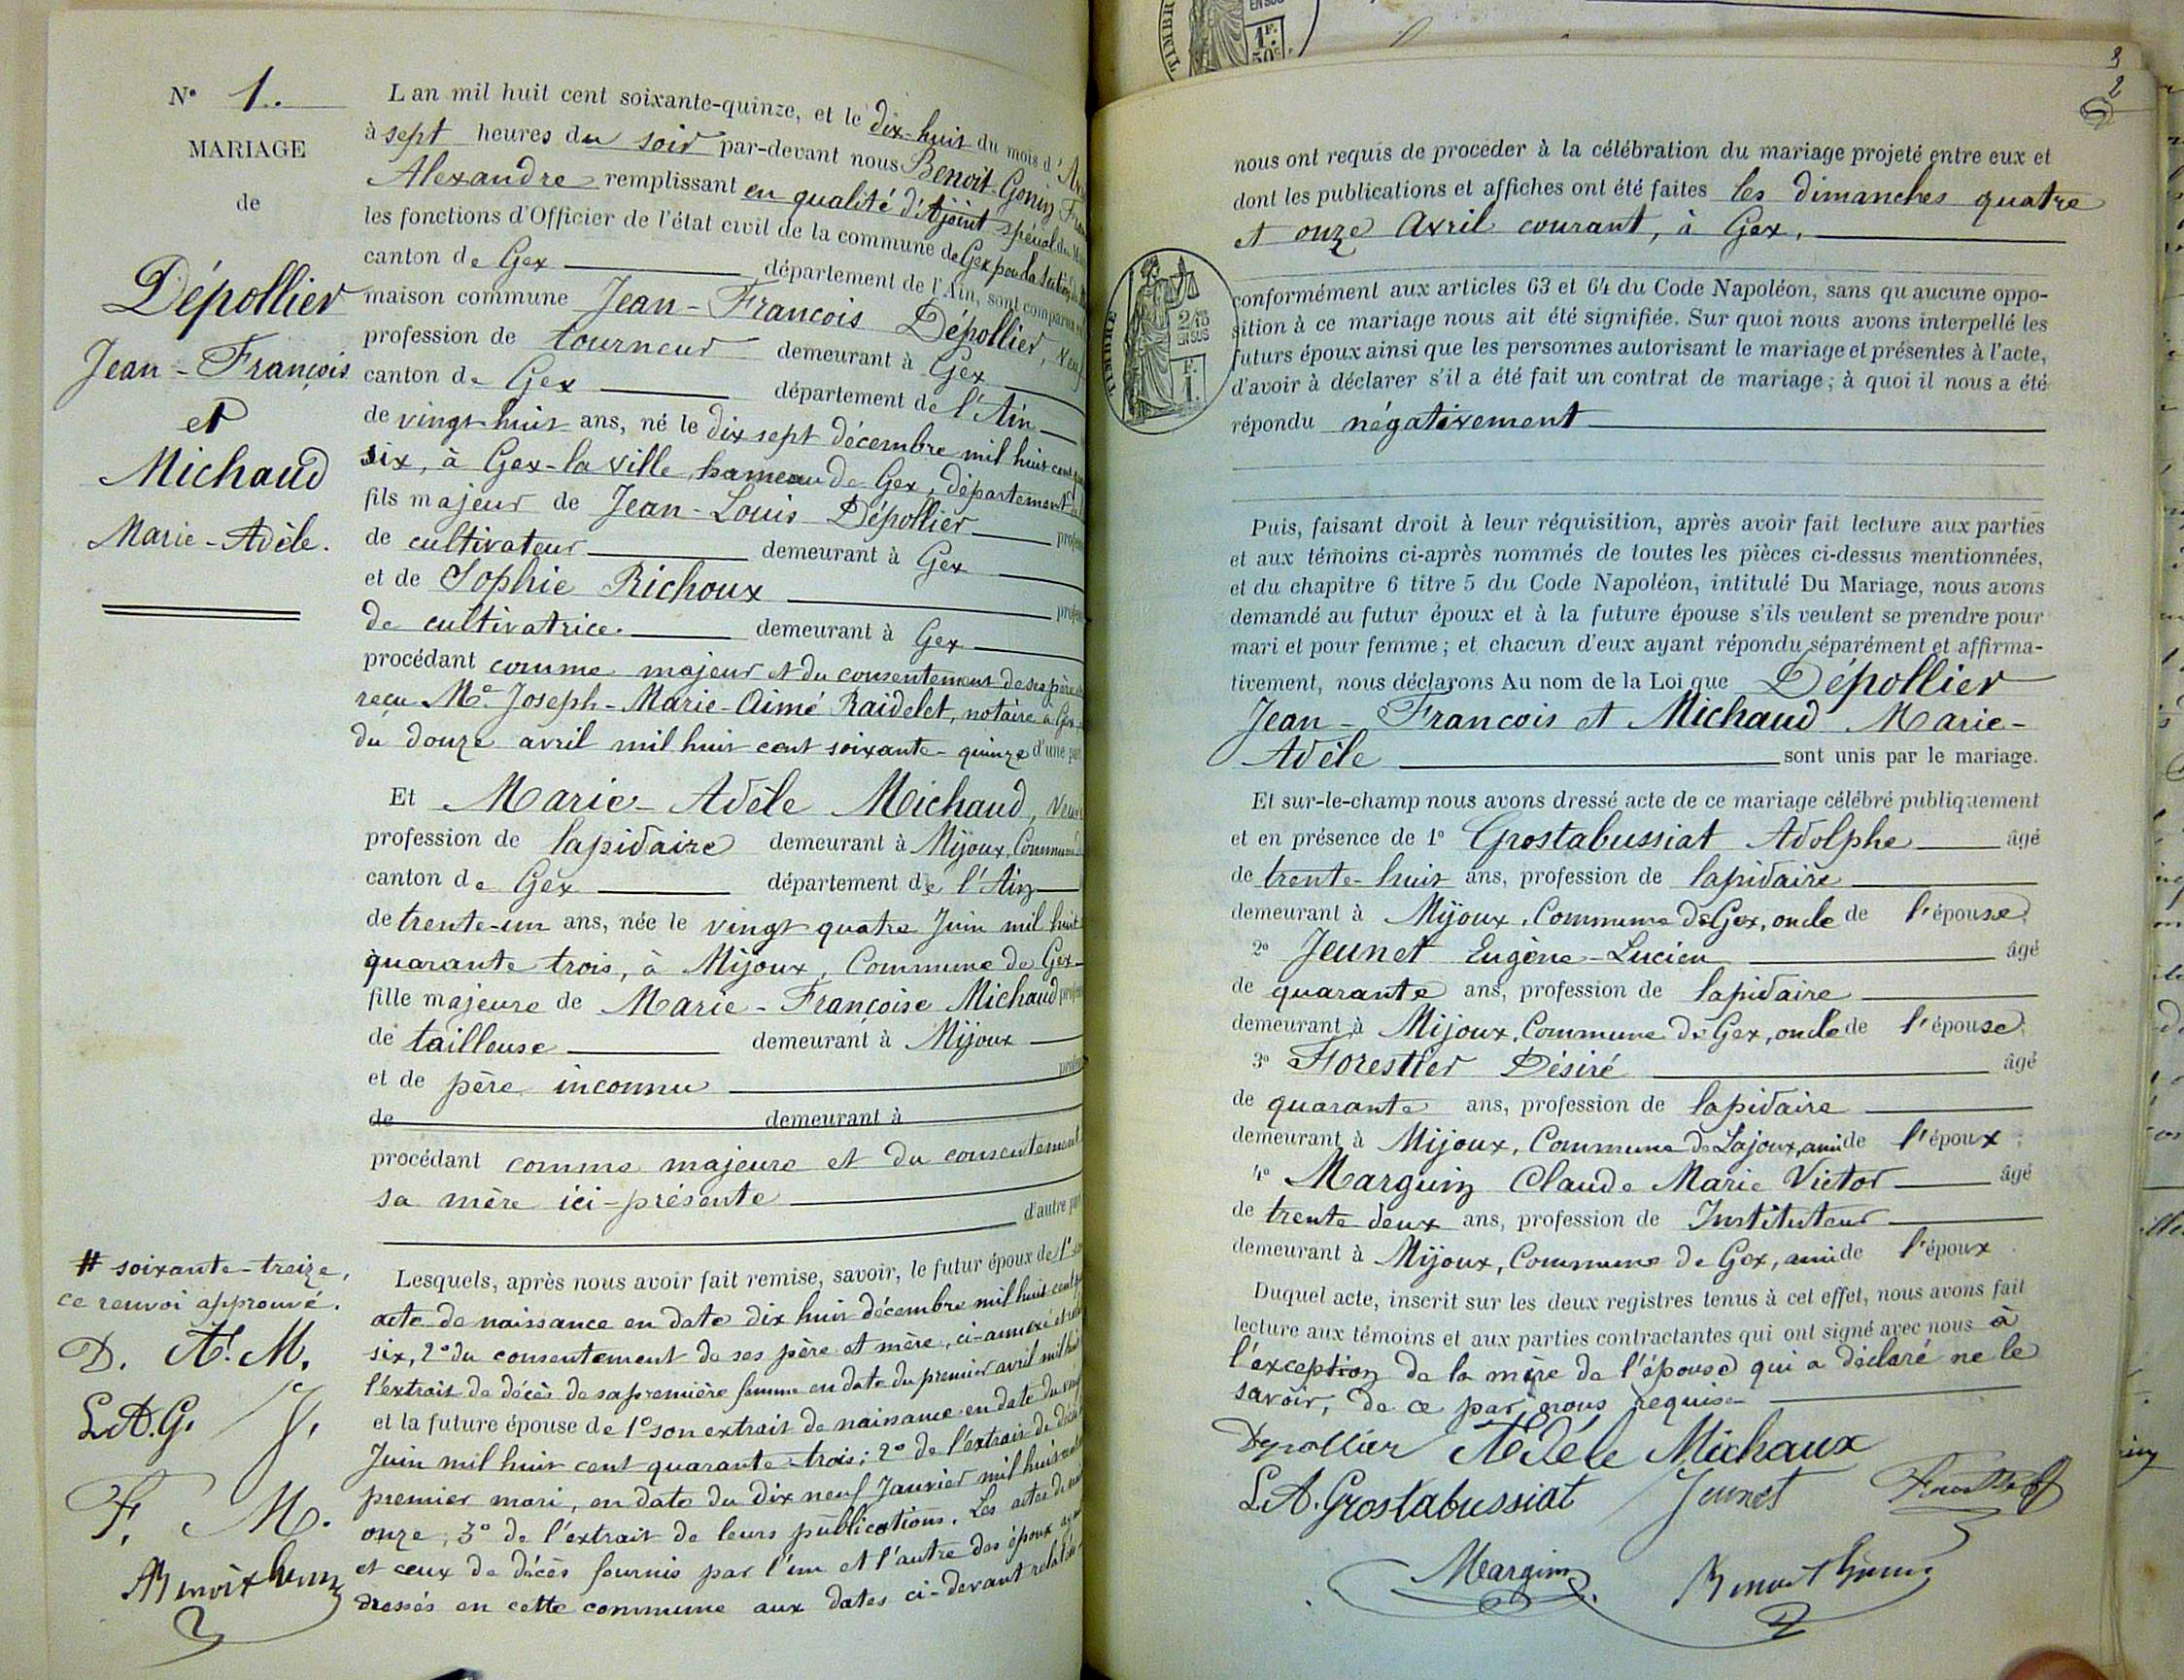 N° 1.
MARIAGE
de
Dépollier
Jean-François
et
Michaud
Marie-Adèle.
L an mil huit cent soixante-quinze, et le dix-huit du mois d'
à sept heures du soir par-devant nous Benoit-Gonin
Alexandre remplissant en qualité d'Ajoint spécial du
les fonctions d'Officier de l'état civil de la commune de Gex pour la
canton de Gex département de l'Ain, sont comparus
maison commune Jean-François Dépollier,
profession de tourneur demeurant à Gex
canton de Gex département de l'Ain
de vingt-huit ans, né le dix sept décembre mil huit cent
six, à Gex-la ville, hameau de Gex, département
fils majeur de Jean-Louis Dépollier
de cultivateur demeurant à Gex
et de Sophie Richoux
de cultivatrice. demeurant à Gex
procédant comme majeur et du consentement de ses père
reçu Me Joseph-Marie-Aimé Raidelet, notaire à Gex
du douze avril mil huit cent soixante-quinze d'une
Et Marie-Adèle Michaud,
profession de lapidaire demeurant à Mijoux, Commune
canton de Gex département de l'Ain
de trente-un ans, née le vingt quatre Juin mil huit
quarante trois, à Mijoux, Commune de Gex
fille majeure de Marie-Françoise Michaud
de tailleuse demeurant à Mijoux
et de père inconnu
de demeurant à
procédant comme majeure et du consentement
sa mère ici-présente
d'autre
# soixante-treize,
ce renvoi approuvé.
D. A. M.
L.A.G. J.
F. M.
Lesquels, après nous avoir fait remise, savoir, le futur époux de 1°
acte de naissance en date dix huit décembre mil huit cent
six, 2° du consentement de ses père et mère, ci-annexé
l'extrait de décès de sa première femme en date du premier avril mil huit
et la future épouse de 1° son extrait de naissance en date du
Juin mil huit cent quarante-trois; 2° de l'extrait de décès
premier mari, en date du dix neuf Janvier mil huit cent
onze, 3° de l'extrait de leurs publications. Les actes de
et ceux de décès fournis par l'un et l'autre des époux
dressés en cette commune aux dates ci-devant
1F.
50c.
3
2
nous ont requis de procéder à la célébration du mariage projeté entre eux et
dont les publications et affiches ont été faites les dimanches quatre
et onze Avril courant, à Gex.
TIMBRE
2/10
EN SUS
F.
1.
conformément aux articles 63 et 64 du Code Napoléon, sans qu aucune oppo-
sition à ce mariage nous ait été signifiée. Sur quoi nous avons interpellé les
futurs époux ainsi que les personnes autorisant le mariage et présentes à l'acte,
d'avoir à déclarer s'il a été fait un contrat de mariage; à quoi il nous a été
répondu négativement
Puis, faisant droit à leur réquisition, après avoir fait lecture aux parties
et aux témoins ci-après nommés de toutes les pièces ci-dessus mentionnées,
et du chapitre 6 titre 5 du Code Napoléon, intitulé Du Mariage, nous avons
demandé au futur époux et à la future épouse s'ils veulent se prendre pour
mari et pour femme; et chacun d'eux ayant répondu séparément et affirma-
tivement, nous déclarons Au nom de la Loi que Dépollier
Jean-François et Michaud Marie-
Adèle sont unis par le mariage.
Et sur-le-champ nous avons dressé acte de ce mariage célébré publiquement
et en présence de 1° Grostabussiat Adolphe âgé
de trente-huit ans, profession de lapidaire
demeurant à Mijoux, Commune de Gex, oncle de l'épouse
2° Jeunet Eugène-Lucien âgé
de quarante ans, profession de lapidaire
demeurant à Mijoux, Commune de Gex, oncle de l'épouse
3° Forestier Désiré âgé
de quarante ans, profession de lapidaire
demeurant à Mijoux, Commune de Lajoux, ami de l'époux
4° Marguin Claude Marie Victor âgé
de trente deux ans, profession de Instituteur
demeurant à Mijoux, Commune de Gex, ami de l'époux
Duquel acte, inscrit sur les deux registres tenus à cet effet, nous avons fait
lecture aux témoins et aux parties contractantes qui ont signé avec nous à
l'exception de la mère de l'épouse qui a déclaré ne le
savoir, de ce par nous requise
Depollier Adéle Michaux
L.A. Grostabussiat Jeunet
Marguin